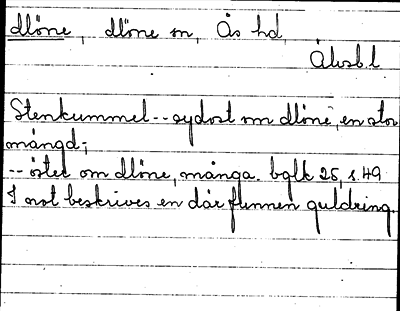 Alöne, Alöne sn, Ås hd,
Älvsb.l
Stenkummel -- sydost om Alöne, en stor
mängd;
-- öster om Alöne, många. bglk 25, s. 49
I not beskrives en där funnen guldring.